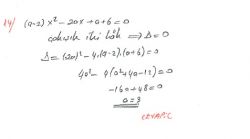 14) (a-2)x² - 20x + a+6 = 0
iki kök ⇒ Δ = 0
Δ = (20)² - 4.(a-2).(a+6) = 0
4a² - 4(a²+4a-12) = 0
-16a + 48 = 0
a = 3
CEVAP: C